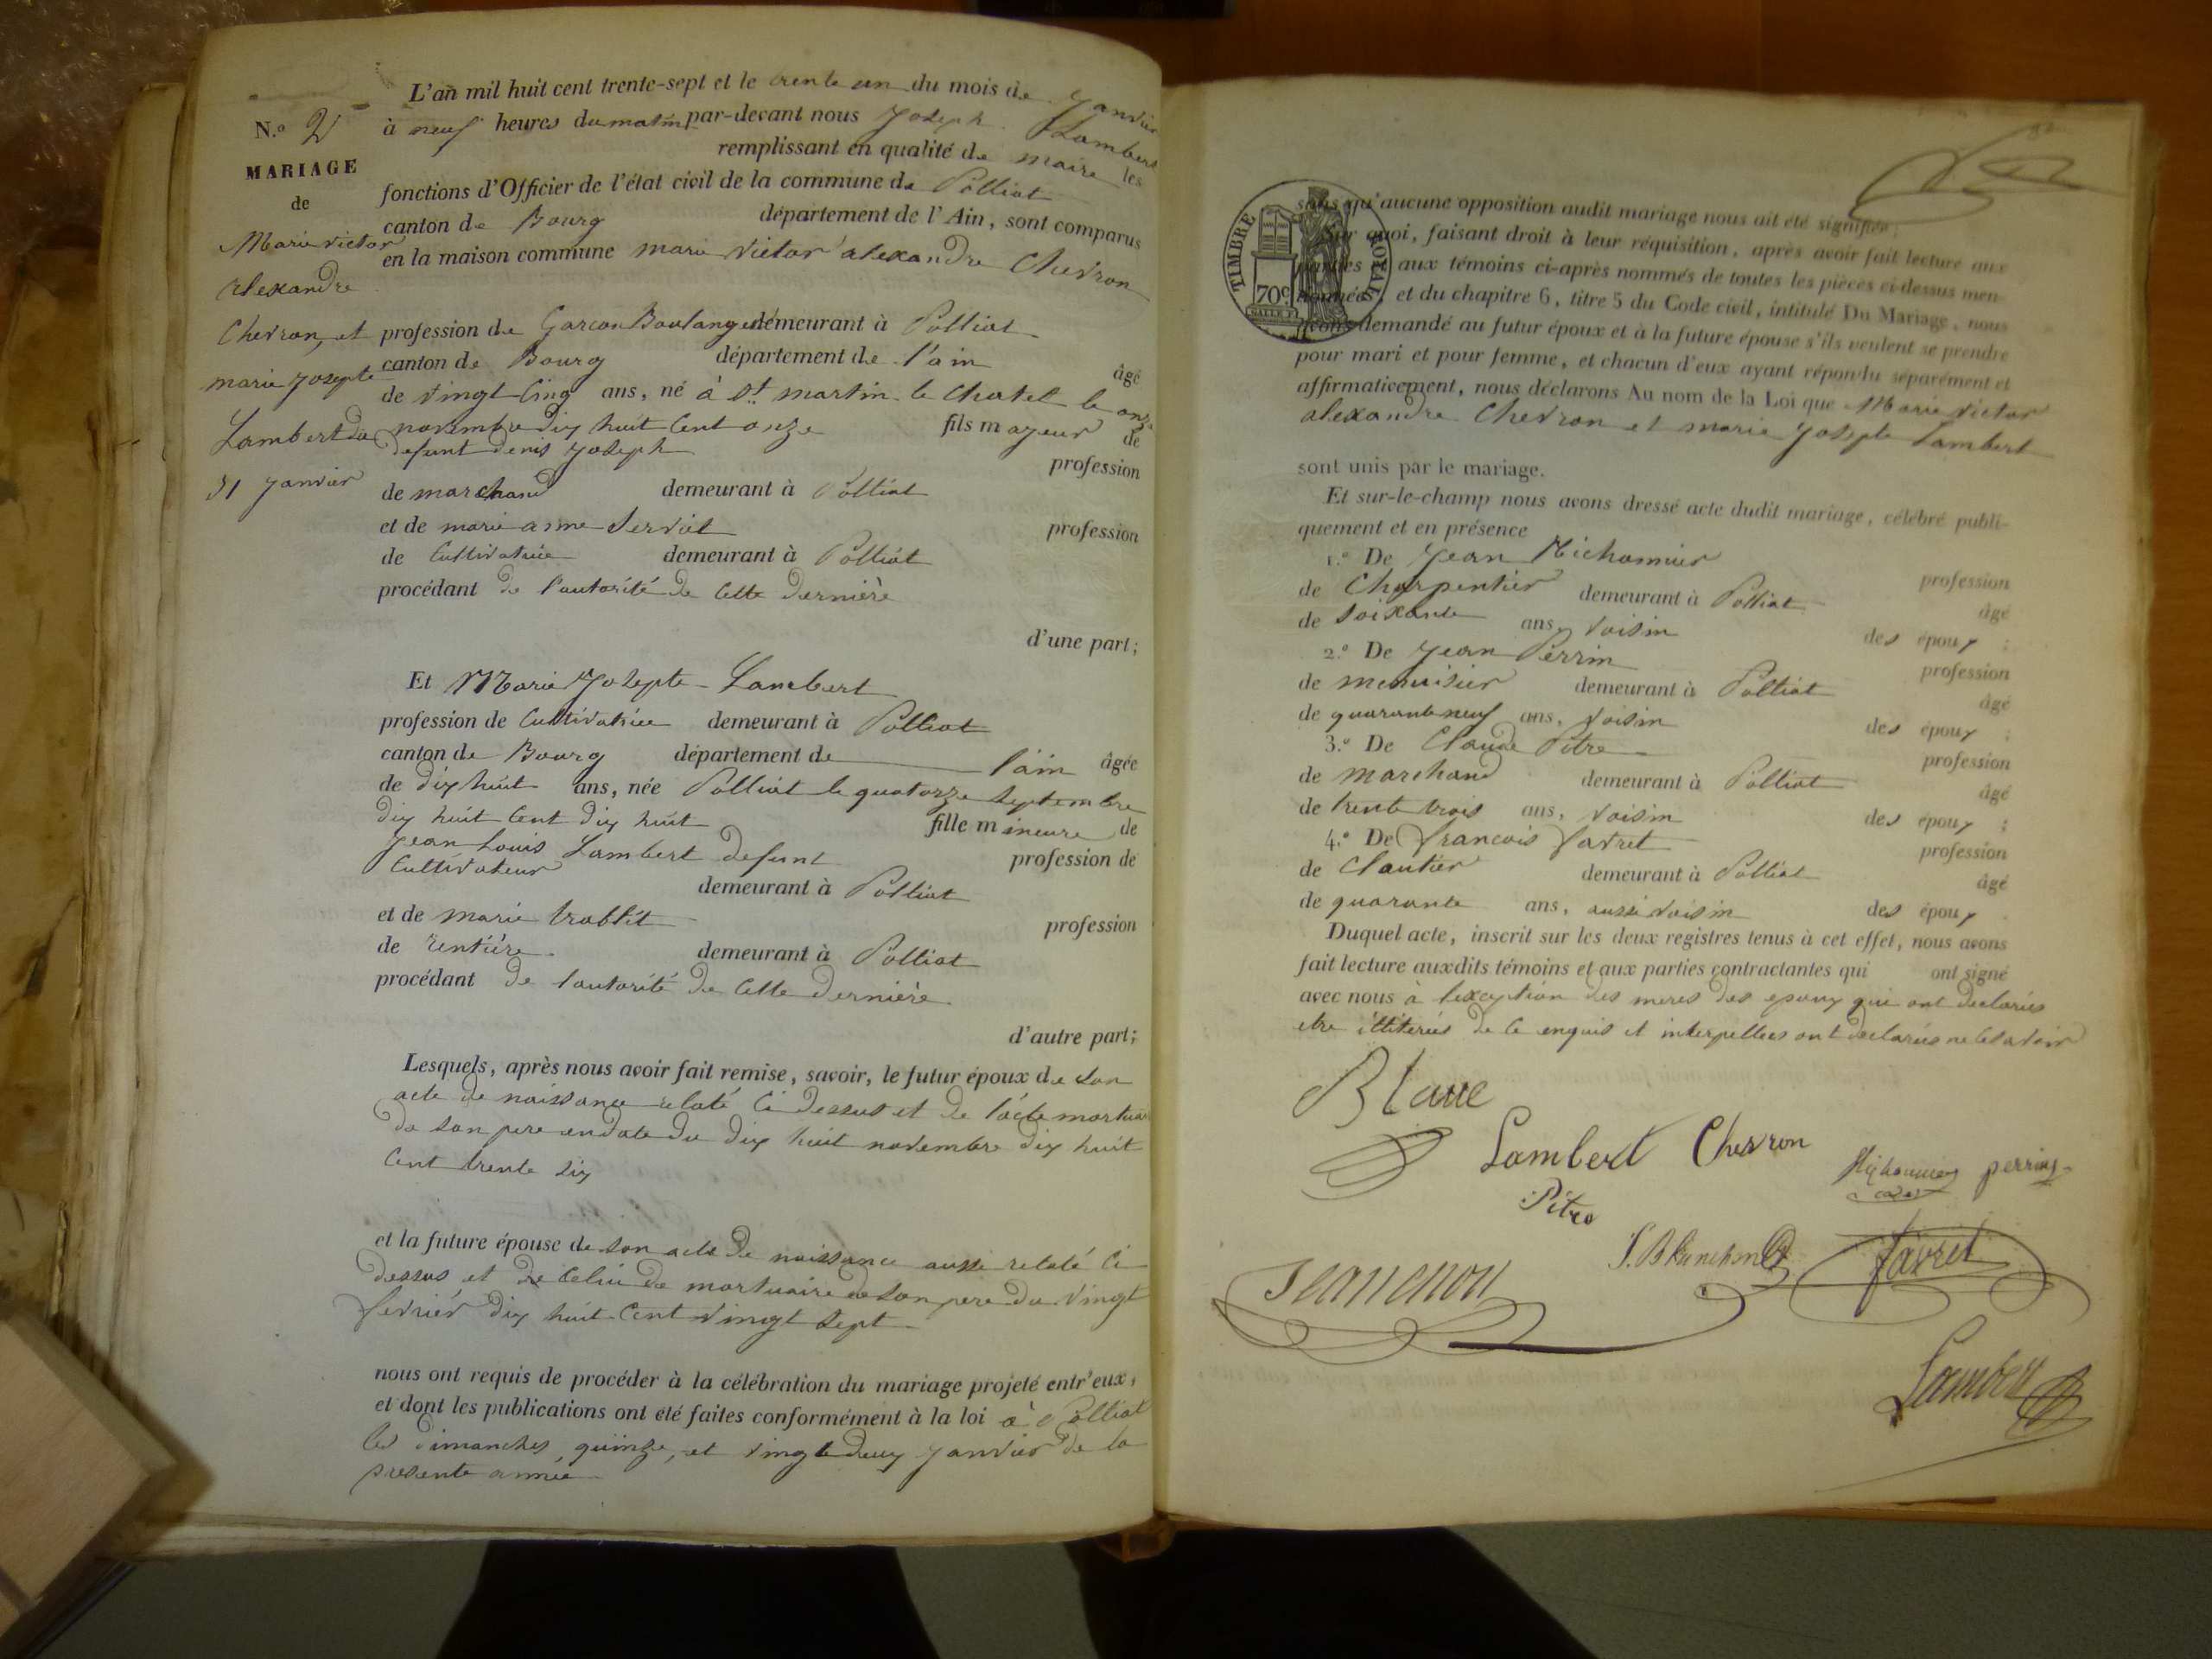 L'an mil huit cent trente-sept et le trente un du mois de janvier
N.o 2
à neuf heures du matin par-devant nous Joseph Lambert
remplissant en qualité de maire les
MARIAGE
de
fonctions d'Officier de l'état civil de la commune de Polliat
canton de Bourg département de l'Ain, sont comparus
Marie victor
alexandre
Chevron, et
marie josepte
Lambert du
31 janvier
en la maison commune marie victor alexandre Chevron
profession de Garcon Boulanger demeurant à Polliat
canton de Bourg département de l'ain âgé
de vingt cinq ans, né à St martin le Chatel le onze
novembre dix huit cent onze fils mayeur de
defunt denis joseph profession
de marchand demeurant à Polliat
et de marie anne Servat profession
de Cultivatrice demeurant à Polliat
procédant de l'autorité de cette dernière
d'une part;
Et Marie Josepte Lambert
profession de Cultivatrice demeurant à Polliat
canton de Bourg département de l'ain âgée
de dix huit ans, née Polliat le quatorze septembre
dix huit cent dix huit fille mineure de
jean Louis Lambert defunt profession de
Cultivateur demeurant à Polliat
et de marie trablit profession
de rentière demeurant à Polliat
procédant de l'autorité de cette dernière
d'autre part;
Lesquels, après nous avoir fait remise, savoir, le futur époux de son
acte de naissance relaté ci dessus et de l'acte mortuai
de son pere en date du dix huit novembre dix huit
cent trente six
et la future épouse de son acte de naissance aussi relaté ci
dessus et de celui de mortuaire de son pere du vingt
fevrier dix huit cent vingt sept
nous ont requis de procéder à la célébration du mariage projeté entr'eux,
et dont les publications ont été faites conformément à la loi à Polliat
les dimanches, quinze, et vingt deux janvier de la
presente année
TIMBRE ROYAL
70c
sans qu'aucune opposition audit mariage nous ait été signifiée;
Sur quoi, faisant droit à leur réquisition, après avoir fait lecture aux
parties et aux témoins ci-après nommés de toutes les pièces ci-dessus men-
tionnées, et du chapitre 6, titre 5 du Code civil, intitulé Du Mariage, nous
avons demandé au futur époux et à la future épouse s'ils veulent se prendre
pour mari et pour femme, et chacun d'eux ayant répondu séparément et
affirmativement, nous déclarons Au nom de la Loi que Marie victor
alexandre Chevron et marie josepte Lambert
sont unis par le mariage.
Et sur-le-champ nous avons dressé acte dudit mariage, célébré publi-
quement et en présence
1.o De jean Michonnier profession
de Charpentier demeurant à Polliat âgé
de soixante ans, voisin des époux ;
2.o De jean Perrin profession
de menuisier demeurant à Polliat âgé
de quarante neuf ans, voisin des époux ;
3.o De Claude Pitre profession
de marchand demeurant à Polliat âgé
de trente trois ans, voisin des époux ;
4.o De francois favret profession
de cloutier demeurant à Polliat âgé
de quarante ans, aussi voisin des époux
Duquel acte, inscrit sur les deux registres tenus à cet effet, nous avons
fait lecture auxdits témoins et aux parties contractantes qui ont signé
avec nous à l'exception des meres des epoux qui ont declariés
etre illiteriés de ce enquis et interpellees ont declariés ne le savoir
Blanc
Lambert Chevron Michonnier perrin
Pitre
favret
Jeannenon
Lambert